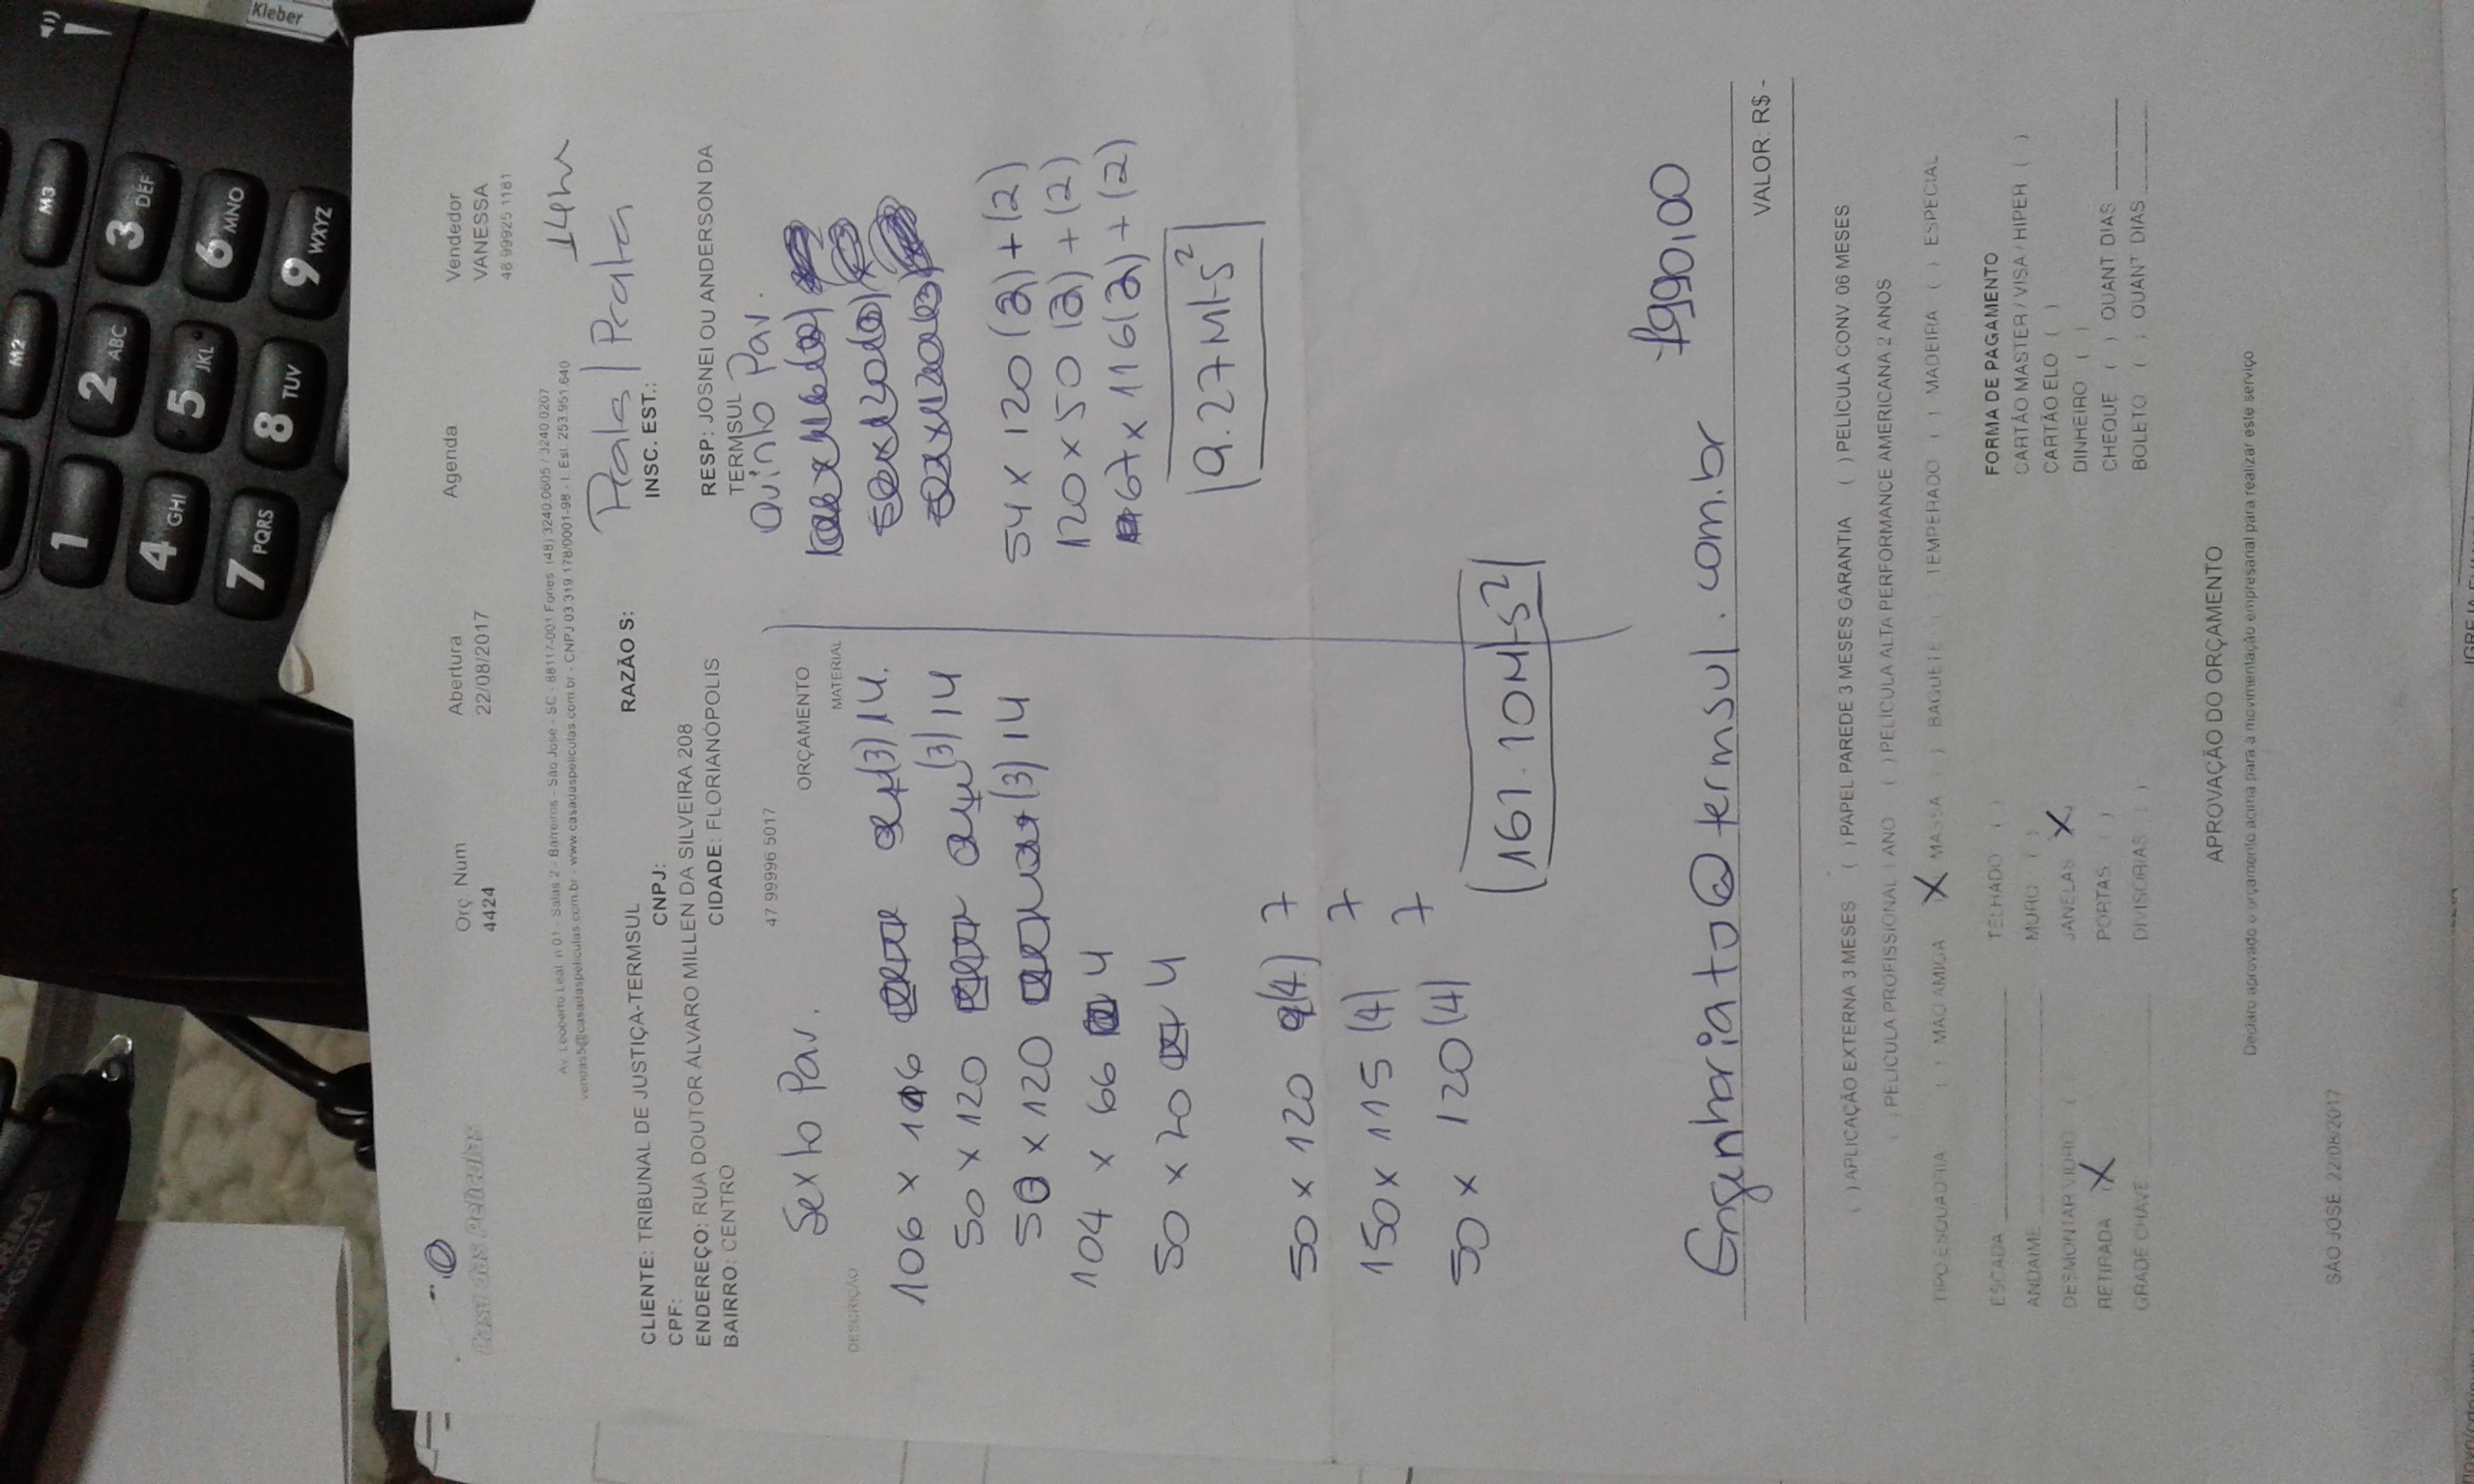 Kleber
M2
M3
1
2 ABC
3 DEF
4 GHI
5 JKL
6 MNO
7 PQRS
8 TUV
9 WXYZ
Orç Num
4424
Abertura
22/08/2017
Agenda
Vendedor
VANESSA
48 999251181
14hr
Av. Leoberto Leal n 01 - Salas 2 - Barreiros - São José - SC - 88117-001 Fones (48) 3240.0605 / 3240.0207
vendas5@casadaspeliculas.com.br - www.casadaspeliculas.com.br - CNPJ 03.319.178/0001-98 - I. Est. 253.951.640
Prata / Prata
RAZÃO S:
INSC. EST.:
CLIENTE: TRIBUNAL DE JUSTIÇA-TERMSUL
CPF:
CNPJ:
ENDEREÇO: RUA DOUTOR ALVARO MILLEN DA SILVEIRA 208
BAIRRO: CENTRO
CIDADE: FLORIANÓPOLIS
RESP: JOSNEI OU ANDERSON DA
TERMSUL
47 99996 5017
ORÇAMENTO
DESCRIÇÃO
MATERIAL
Sexto Pav.
106 x 116 (3) 14.
50 x 120 (3) 14
50 x 120 (3) 14
104 x 66 4
50 x 20 4
50 x 120 (4) 7
150 x 115 (4) 7
50 x 120 (4) 7
161.10 Mts²
Quinto Pav.
54 x 120 (2) + (2)
120 x 50 (2) + (2)
67 x 116 (2) + (2)
9.27 Mts²
Engenharia to@termsul.com.br
1990,00
VALOR: R$ -
( ) APLICAÇÃO EXTERNA 3 MESES ( ) PAPEL PAREDE 3 MESES GARANTIA ( ) PELÍCULA CONV 06 MESES
( ) PELICULA PROFISSIONAL 1 ANO ( ) PELICULA ALTA PERFORMANCE AMERICANA 2 ANOS
TIPO ESQUADRIA ( ) MÃO AMIGA X MASSA ( ) BAGUETE ( ) TEMPERADO ( ) MADEIRA ( ) ESPECIAL
ESCADA
TELHADO ( )
FORMA DE PAGAMENTO
ANDAIME
MURO ( )
CARTÃO MASTER / VISA / HIPER ( )
DESMONTAR VIDRO (
JANELAS X
CARTÃO ELO ( )
RETIRADA X
PORTAS ( )
DINHEIRO ( )
GRADE CHAVE
DIVISORIAS ( )
CHEQUE ( ) QUANT DIAS
BOLETO ( ) QUANT DIAS
APROVAÇÃO DO ORÇAMENTO
Declaro aprovado o orçamento acima para a movimentação empresarial para realizar este serviço
SÃO JOSÉ 22/08/2017